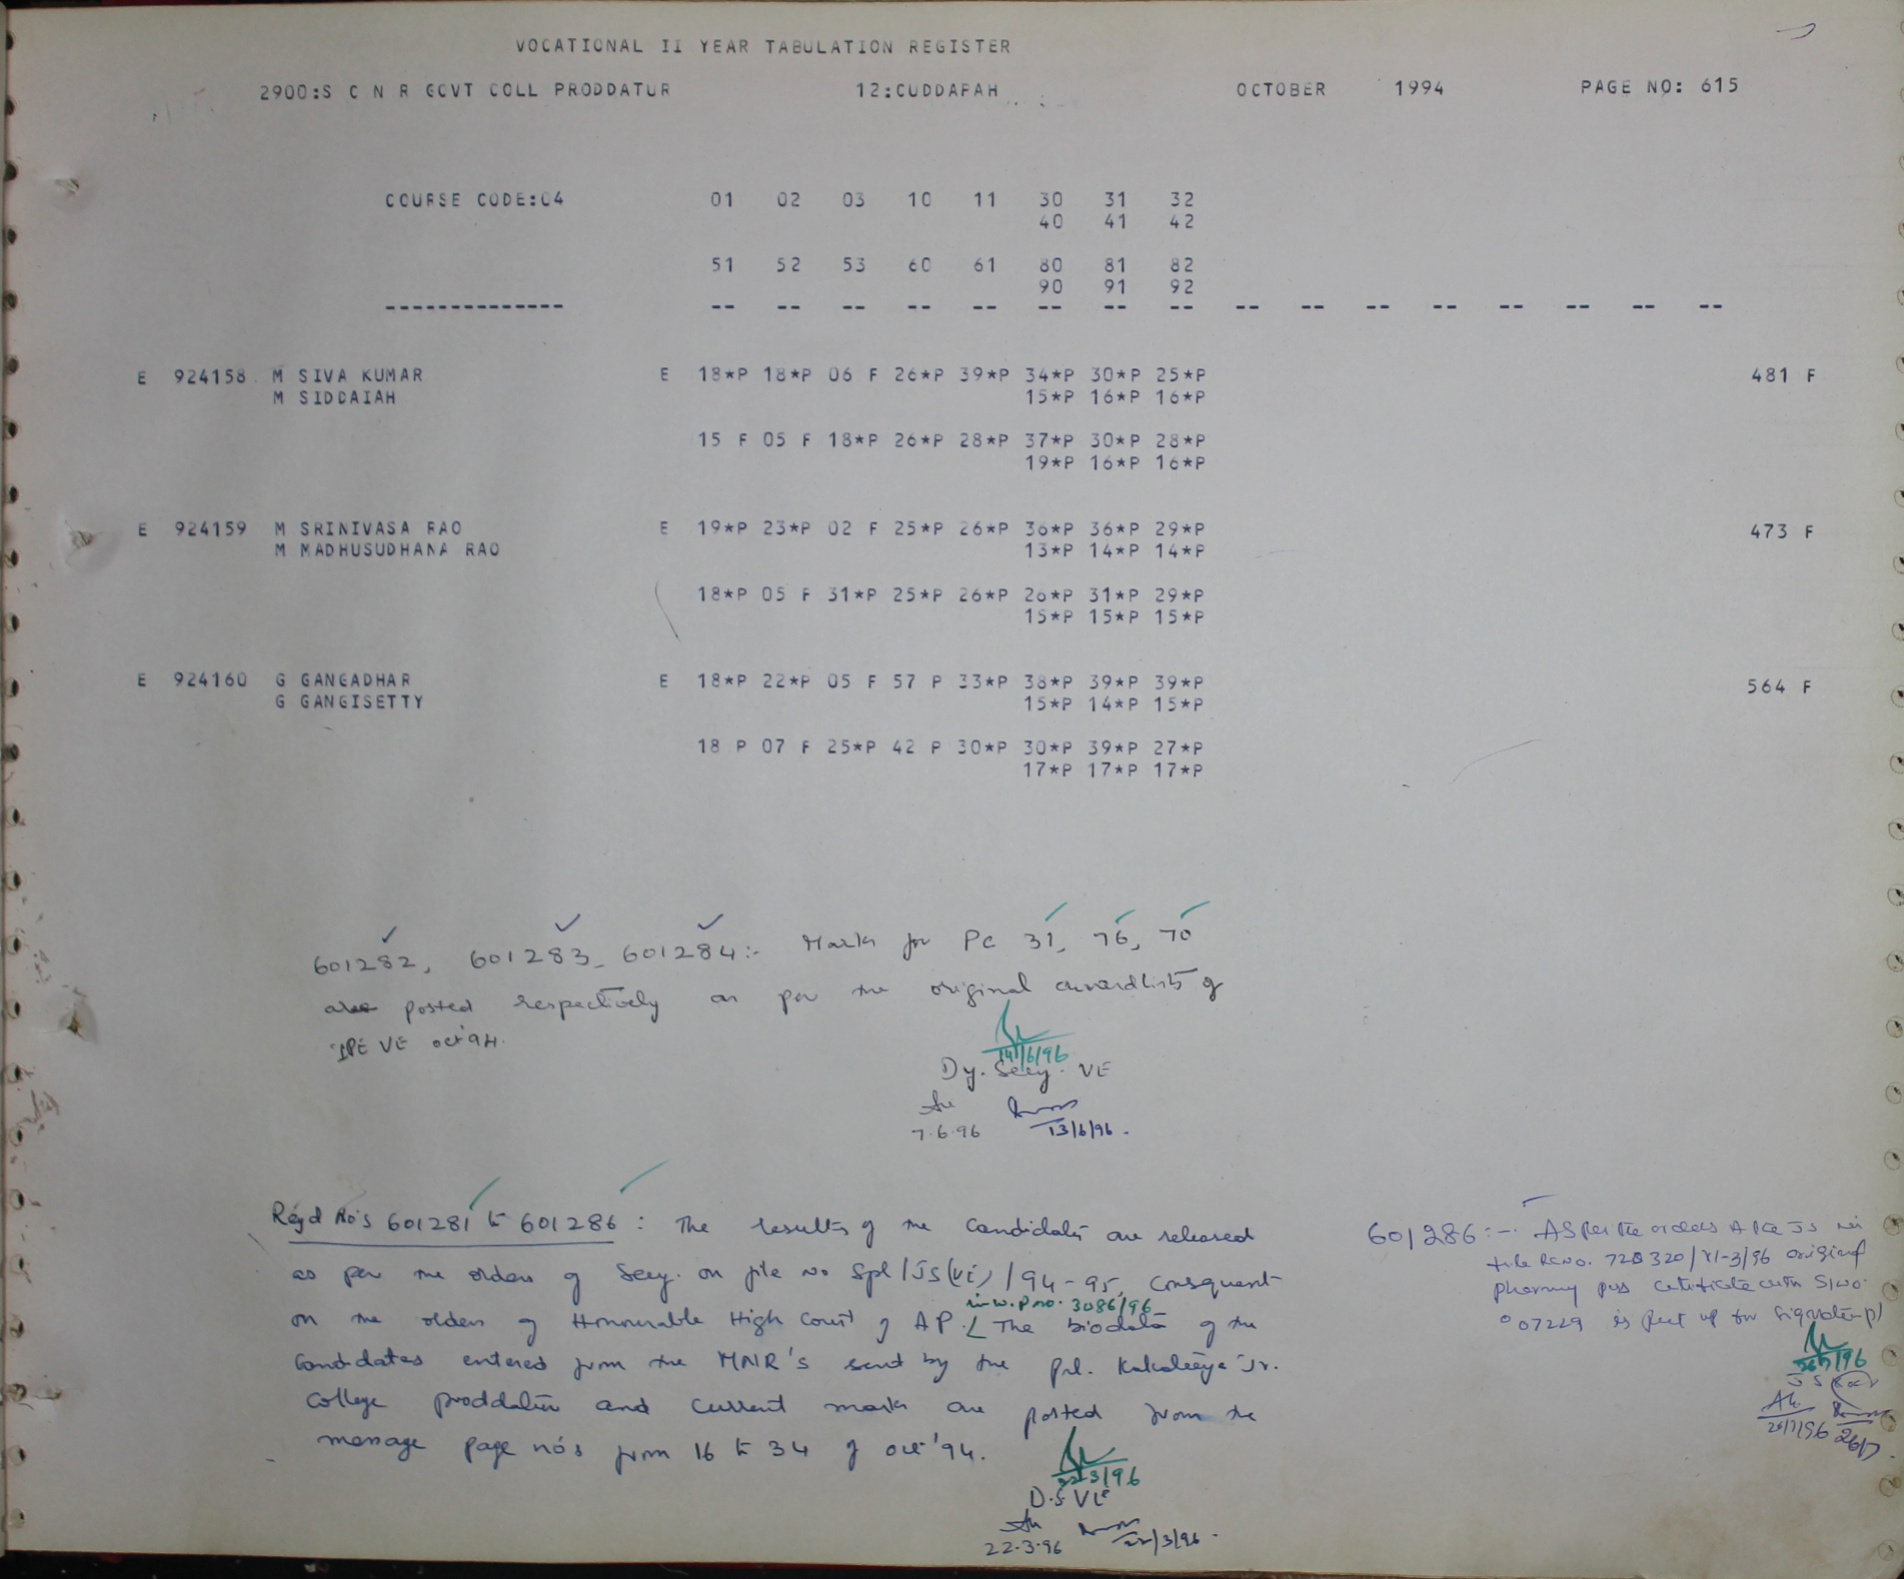 VOCATIONAL II YEAR TABULATION REGISTER
2900:S C N R GOVT COLL PRODDATUR 12:CUDDAPAH OCTOBER 1994 PAGE NO: 615
COURSE CODE:04 01 02 03 10 11 30 31 32
40 41 42
51 52 53 60 61 80 81 82
90 91 92
-------------- -- -- -- -- -- -- -- -- -- -- -- -- -- -- -- --
E 924158 M SIVA KUMAR E 18*P 18*P 06 F 26*P 39*P 34*P 30*P 25*P 481 F
M SIDDAIAH 15*P 16*P 16*P
15 F 05 F 18*P 26*P 28*P 37*P 30*P 28*P
19*P 16*P 16*P
E 924159 M SRINIVASA RAO E 19*P 23*P 02 F 25*P 26*P 36*P 36*P 29*P 473 F
M MADHUSUDHANA RAO 13*P 14*P 14*P
18*P 05 F 31*P 25*P 26*P 26*P 31*P 29*P
15*P 15*P 15*P
E 924160 G GANGADHAR E 18*P 22*P 05 F 57 P 33*P 38*P 39*P 39*P 564 F
G GANGISETTY 15*P 14*P 15*P
18 P 07 F 25*P 42 P 30*P 30*P 39*P 27*P
17*P 17*P 17*P
601282, 601283, 601284:- Marks for PC 31, 76, 70
are posted respectively as per the original awardlists of
IPE VE oct'94.
14/6/96
Dy. Secy. VE
7.6.96 13/6/96.
Regd No's 601281 to 601286 : The results of the candidates are released
as per the orders of Secy. on file No Spl/JS(VE)/94-95, Consquent
in w.p no. 3086/96
on the orders of Honourable High Court of AP. The biodata of the
candidates entered from the MNR's sent by the prl. Kakateeya Jr.
College proddatur and current marks are posted from the
message page nos from 16 to 34 of oct'94.
22/3/96
D.S VE
22.3.96 22/3/96.
601286:- As per the orders
file Rc No. 728320/VI-3/96 original
pharmacy pass certificate with Sl No.
007229 is put up for signature pl
26/7/96
JS
26/7/96 26/7